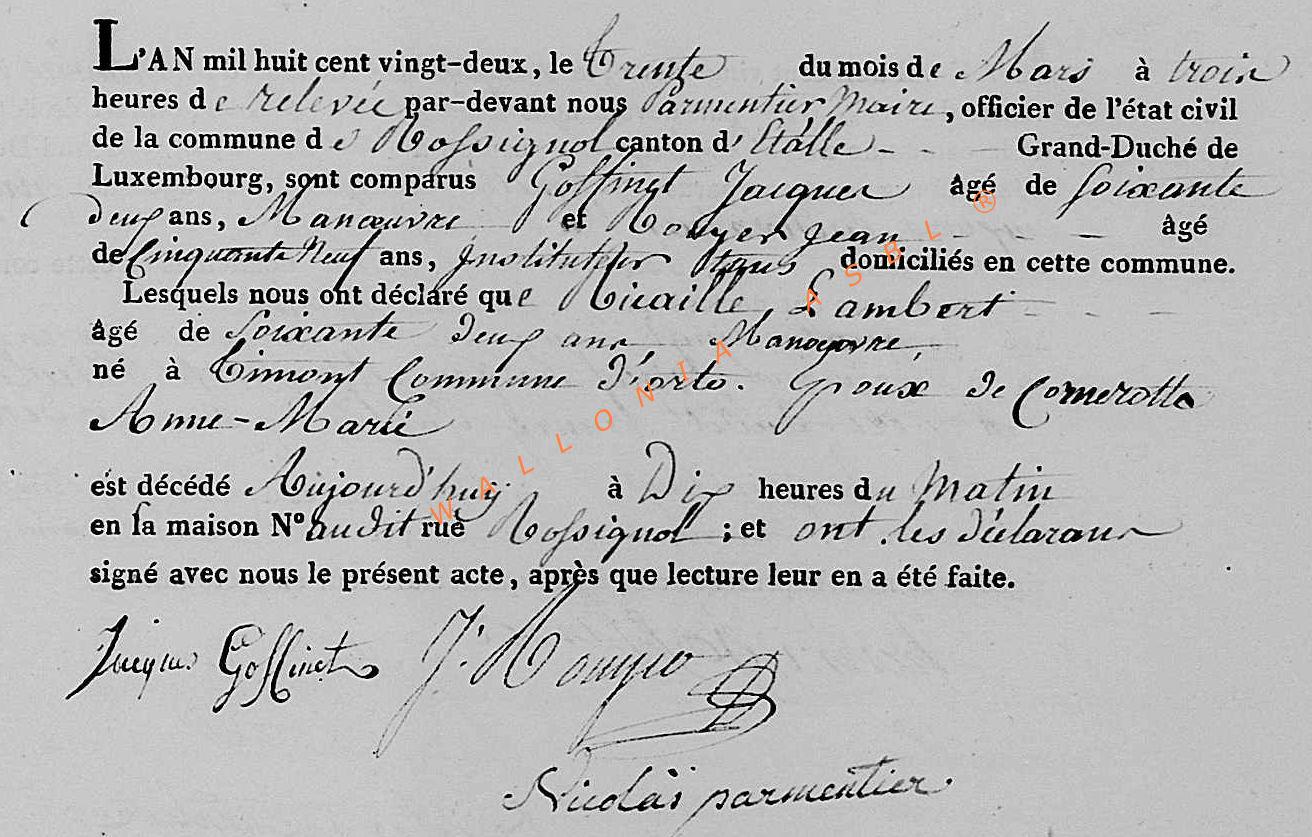 L'AN mil huit cent vingt-deux, le Trente du mois de Mars à trois
heures de relevée par-devant nous Parmentier Maire, officier de l'état civil
de la commune de Rossignol canton d'Etalle - - Grand-Duché de
Luxembourg, sont comparus Goffinet Jacques âgé de soixante
deux ans, Manœuvre et Rouyer Jean - - - âgé
de Cinquante Neuf ans, Instituteur tous domiciliés en cette commune.
Lesquels nous ont déclaré que Nicaille Lambert - - -
âgé de soixante deux ans Manoeuvre,
né à Timont Commune d'orto. Epoux de Cornerotte
Anne-Marie
est décédé Aujourd'huy à Dix heures du Matin
en sa maison N° audit rue Rossignol ; et ont les déclarans
signé avec nous le présent acte, après que lecture leur en a été faite.
Jacques Goffinet J. Rouyer
Nicolas parmentier
WALLONIA ASBL ®